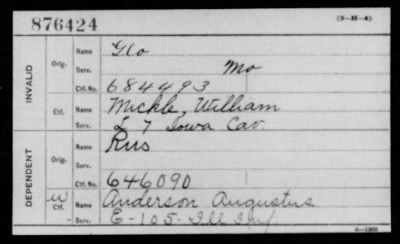 876424
(3—H—4)
INVALID
Orig.
Name Geo
Serv. Mo
Ctf. No. 684493
Ctf.
Name Mickle, William
Serv. L 7 Iowa Cav.
DEPENDENT
Orig.
Name Rus
Serv.
Ctf. No. 646090
W Ctf.
Name Anderson Augustus
Serv. E-105-Ill Inf